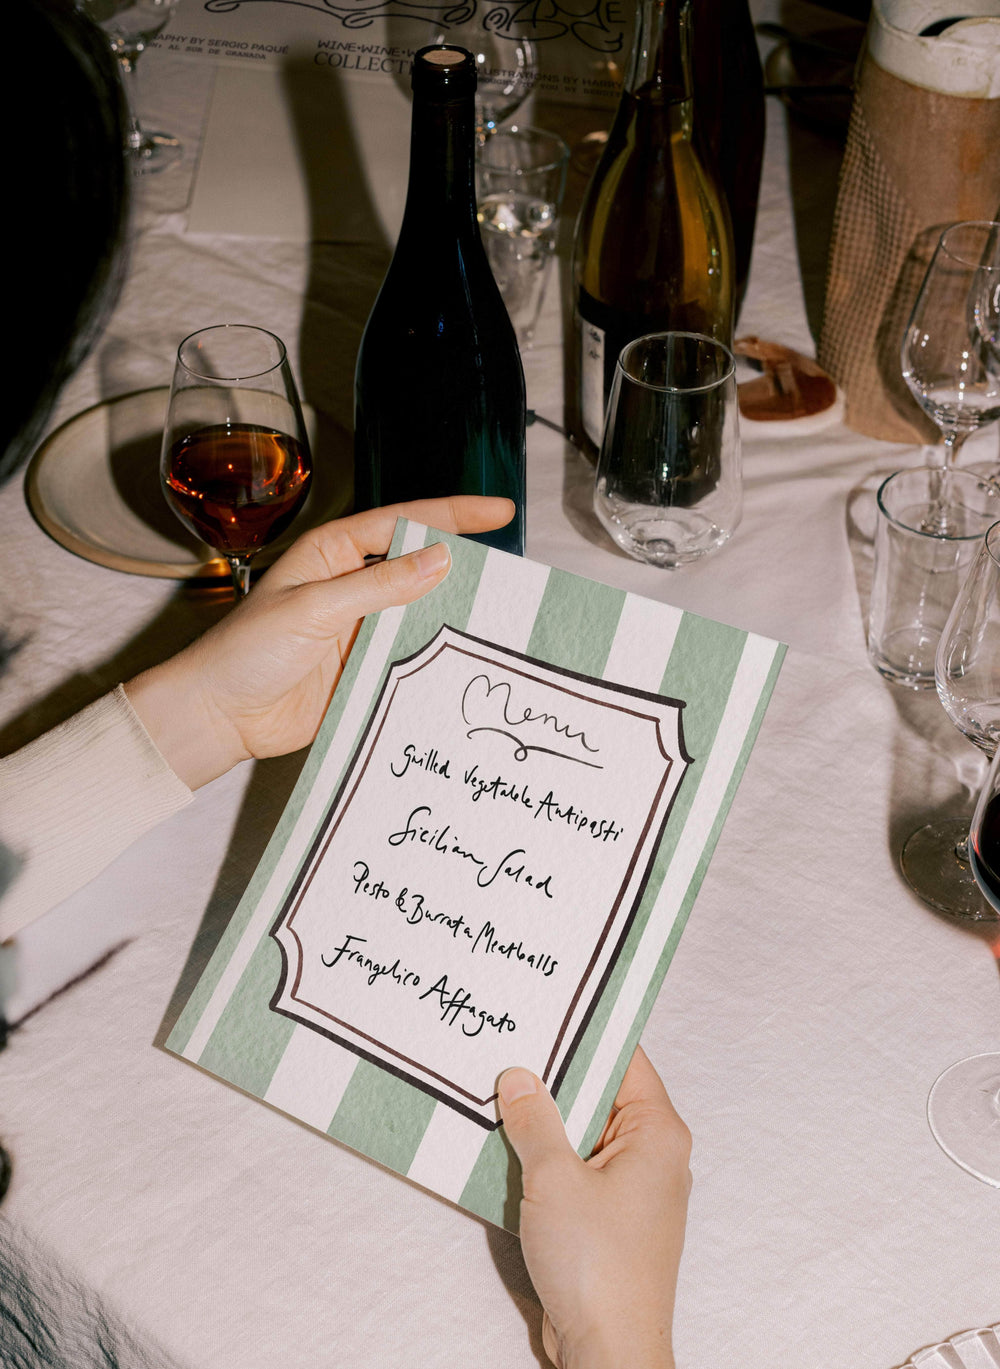 GRAPHY BY SERGIO PAQUÉ
AL SUR DE GRANADA
WINE•WINE•W
COLLECTI
LUSTRATIONS BY HARRY
TO YOU BY
Menu
Grilled Vegetable Antipasti
Sicilian Salad
Pesto & Burrata Meatballs
Frangelico Affagato